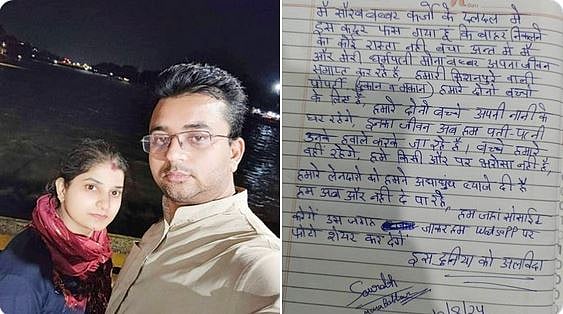 मैं सौरभ बब्बर कर्जों के दलदल में
इस कदर फंस गया है कि बाहर निकलने
का कोई रास्ता नहीं बचा अन्त में मैं
और मेरी धर्मपत्नी मोना बब्बर अपना जीवन
समाप्त कर रहे है हमारी किशनपुरे वाली
प्रॉपर्टी (दुकान व मकान) हमारे दोनो बच्चो
के लिए है हमारे दोनो बच्चे अपनी नानी के
घर रहेंगे इनका जीवन अब हम पति-पत्नी
उनके हवाले करके जा रहे है। बच्चे हमारे
वहीं रहेंगे, हमे किसी और पर भरोसा नहीं है,
हमारे लेनदारो को हमने अंधाधुंध ब्याजे दी है
हम अब और नहीं दे पा रहे, हम जहां सोसाईट
करेंगे उस जगह जाकर हम WhatsAPP पर
फोटो शेयर कर देंगे
इस दुनिया को अलविदा
Saurabh
/8/24